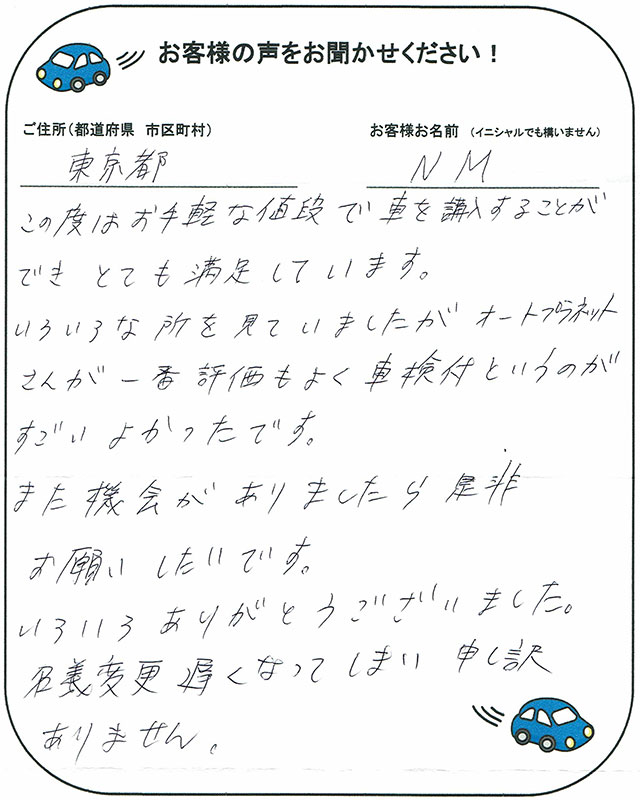 お客様の声をお聞かせください！
ご住所(都道府県 市区町村)
お客様お名前 (イニシャルでも構いません)
東京都
N M
この度はお手軽な値段で車を購入することが
でき とても満足しています。
いろいろな所を見ていましたが オートプラネット
さんが一番評価もよく車検付というのが
すごいよかったです。
また機会がありましたら是非
お願いしたいです。
いろいろありがとうございました。
名義変更遅くなってしまい 申し訳
ありません。